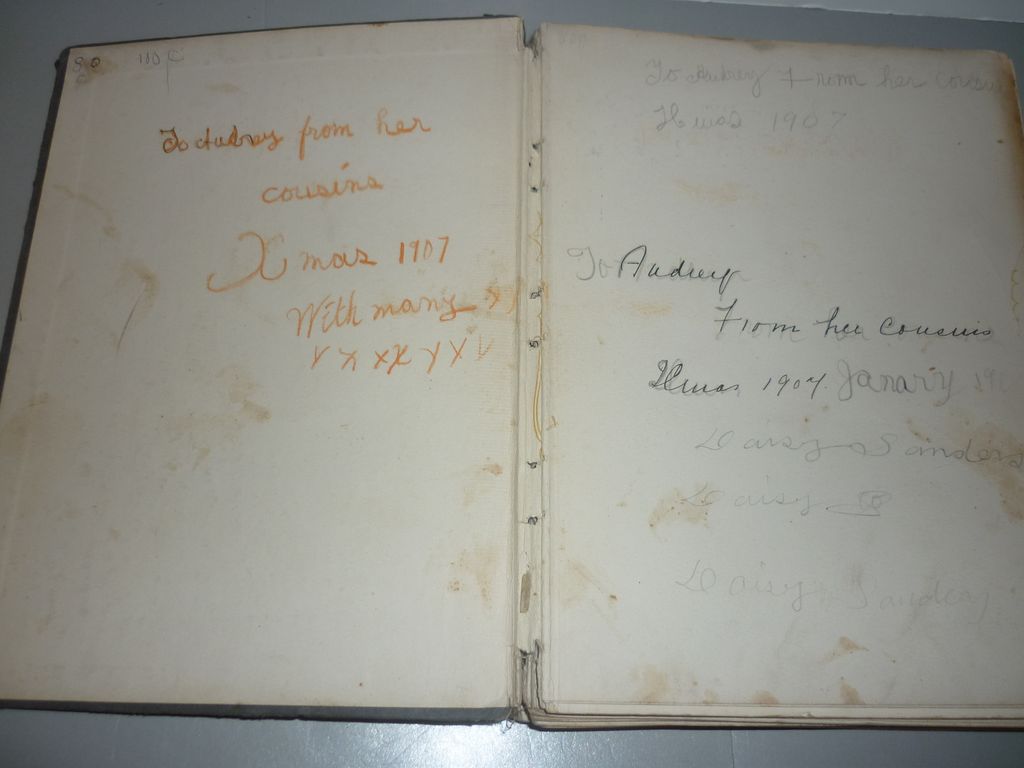 To Audrey from her
cousins
Xmas 1907
With many x
x x x x x x x
To Aubrey From her cousin
Xmas 1907
To Audrey
From her cousins
Xmas 1907. Janary 19
Daisy Sanders
Daisy
Daisy